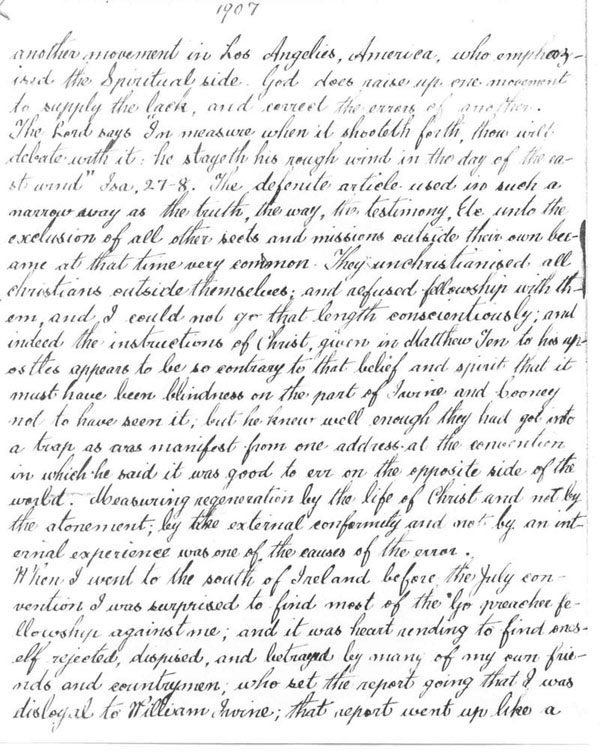 1907
another movement in Los Angelies, America, who emphas-
ised the Spiritual side. God does raise up one movement
to supply the lack, and correct the errors of another.
The Lord says "In measure when it shooteth forth, thou wilt
debate with it: he stayeth his rough wind in the day of the ea-
st wind" Isa, 27-8. The, defenite article used in such a
narrow away as the truth, the way, the testimony, Etc unto the
exclusion of all other sects and missions outside their own bec-
ame at that time very common. They unchristianised all
christians outside themselves; and refused fellowship with th-
em, and I could not go that length conscientiously; and
indeed the instructions of Christ, given in Matthew Ten to his ap-
ostles appears to be so contrary to that belief and spirit that it
must have been blindness on the part of Irvine and Cooney
not to have seen it; but he knew well enough they had got into
a trap as was manifest from one address at the convention
in which he said it was good to err on the opposite side of the
world. Measuring regeneration by the life of Christ and not by
the atonement; by external conformity and not by an int-
ernal experience was one of the causes of the error.
When I went to the south of Ireland before the July con-
vention I was surprised to find most of the "Go preacher fe-
llowship against me; and it was heart rending to find ones-
elf rejected, dispised, and betrayed by many of my own frie-
nds and countrymen; who set the report going that I was
disloyal to William Irvine; that report went up like a